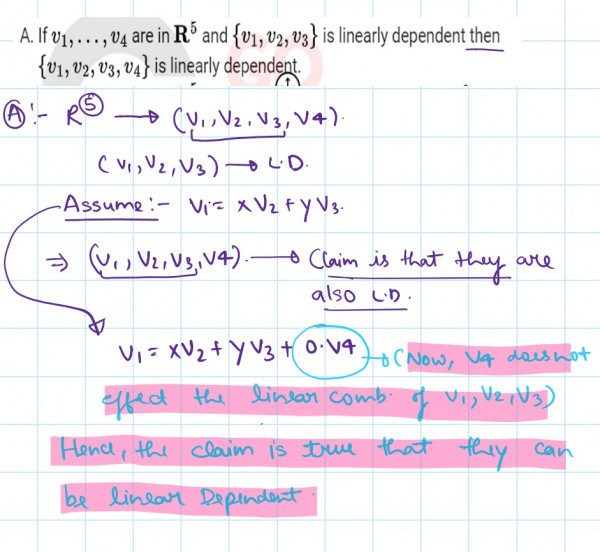 A. If v₁, . . . , v₄ are in R⁵ and {v₁, v₂, v₃} is linearly dependent then
{v₁, v₂, v₃, v₄} is linearly dependent.
Ⓐ :- R⑤ → (V₁, V₂, V₃, V4).
(V₁, V₂, V₃) → L.D.
Assume :- V₁ = xV₂ + yV₃.
⇒ (V₁, V₂, V₃, V4). → Claim is that they are
also L.D.
V₁ = xV₂ + yV₃ + 0·V4 → (Now, V4 does not
effect the linear comb. of V₁, V₂, V₃)
Hence, the claim is true that they can
be linear Dependent.